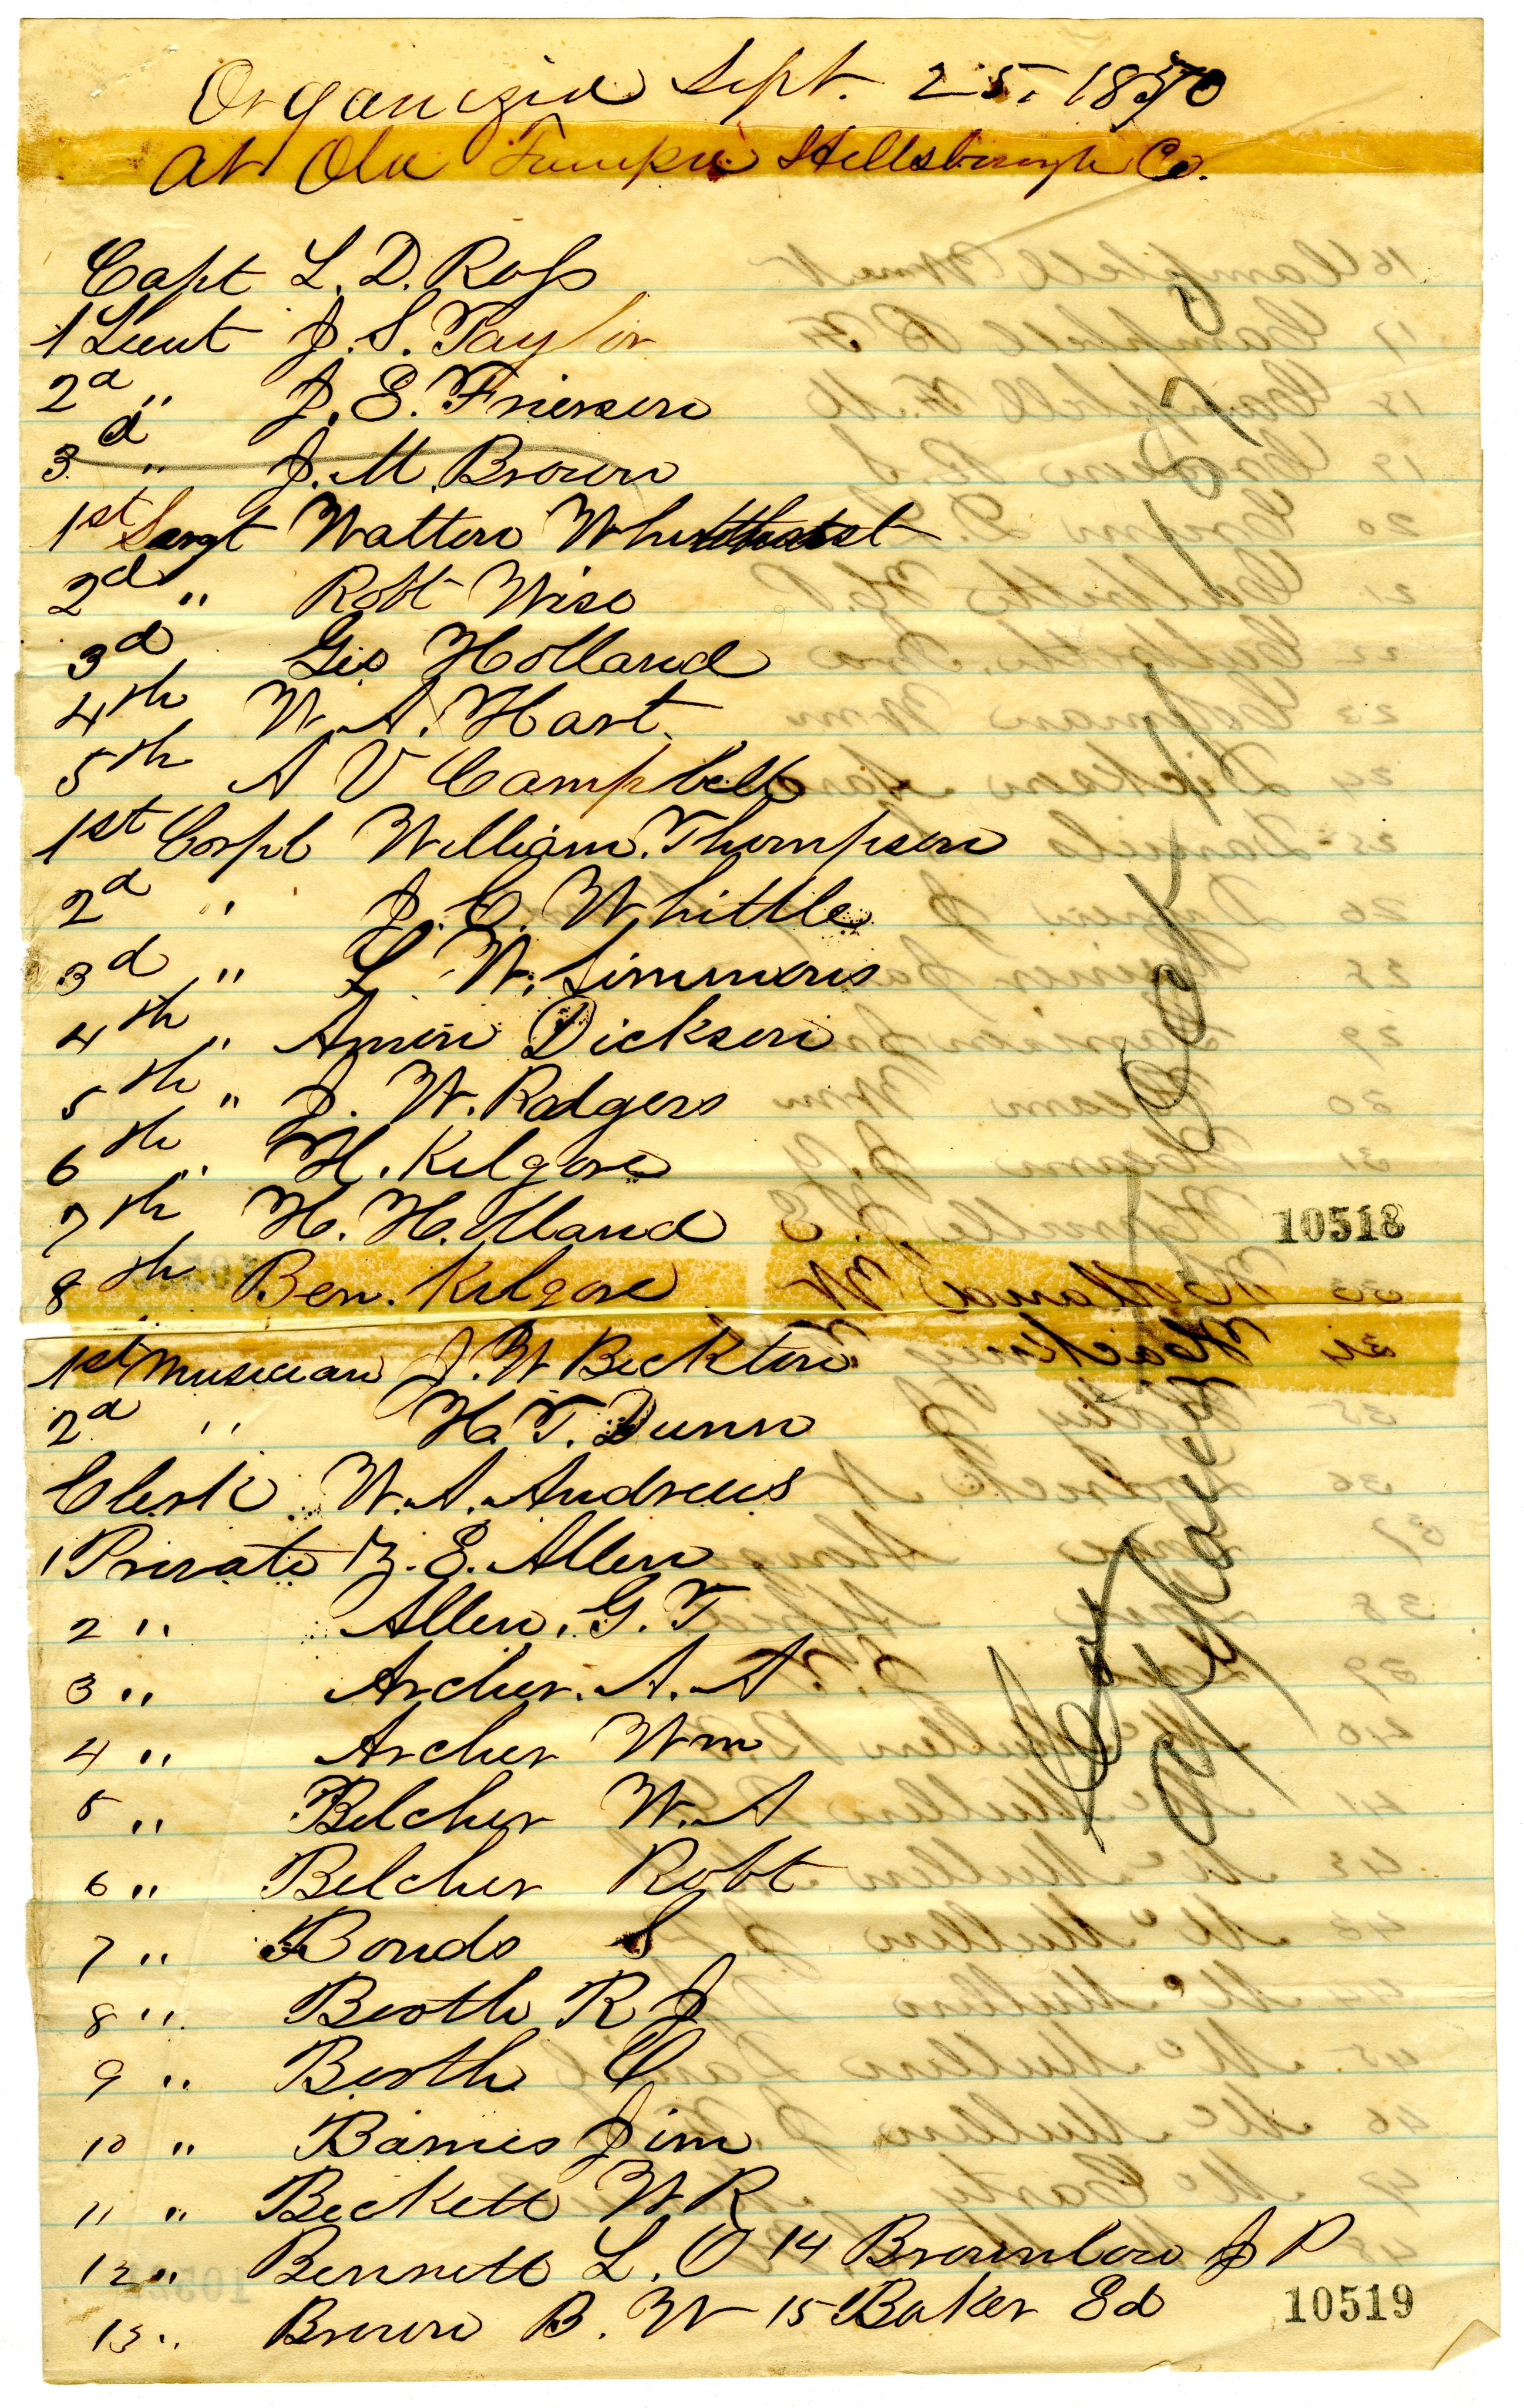 Organized Sept. 25, 1870
at Old Tampa Hillsborough Co.
Capt L. D. Ross
1 Lieut J. S. Taylor
2d " J. E. Frierson
3d " J. M. Brown
1st Sargt Walton Whitehurst
2d " Robt Wise
3d Geo Holland
4th W. A. Hart
5th A V Campbell
1st Corpl William Thompson
2d " J. C. Whittle
3d " L W. Simmons
4th " Amon Dickson
5th " J. W. Rodgers
6th " H. Kilgore
7th H. Holland
10518
8th " Ben. Kilgore
1st Musician J. W Beckton
2d " H. T. Dunn
Clerk W. A. Andrews
1 Private B. E. Allen
2 " Allen, G. T
3 " Archer. A. A
4 " Archer Wm
5 " Belcher W. A
6 " Belcher Robt
7 " Bonds S
8 " Booth R J
9 " Booth O
10 " Barnes Jim
11 " Beckett W R
12 " Bennett L. O 14 Brownlow J P
13 " Brown B. W 15 Baker Ed
10519